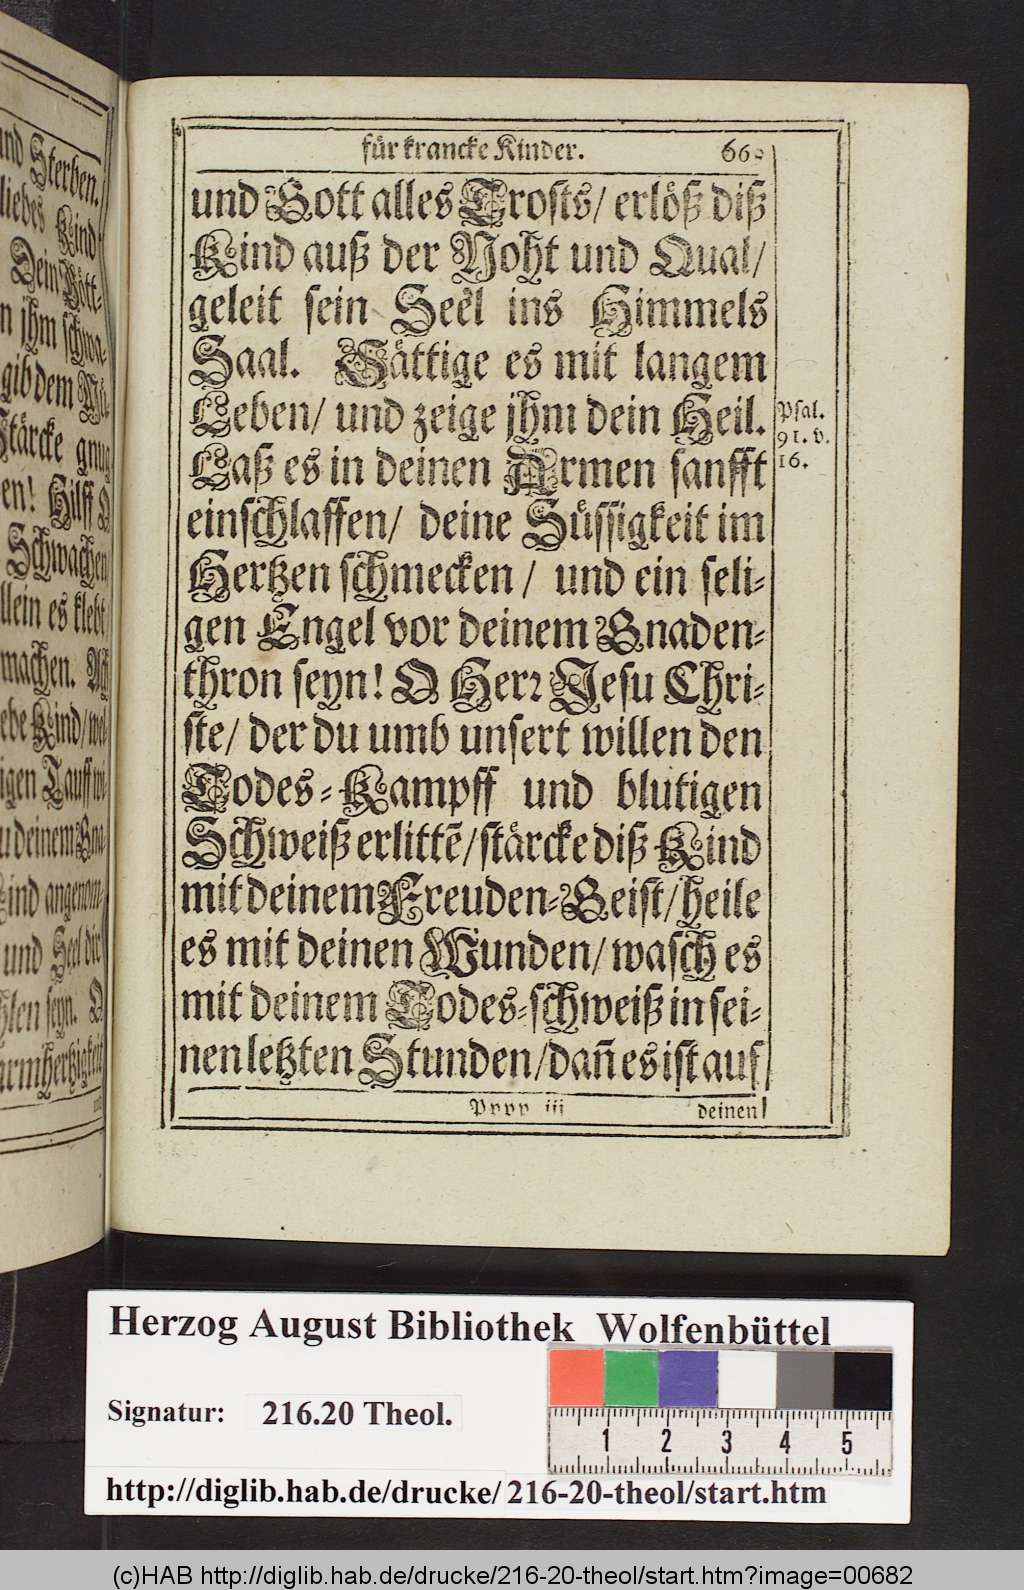 und Sterben.
liebes Kind
Dein Gött-
n jhm schwa-
gib dem
Stärcke gnug
en! Hilff O
Schwachen
llein es klebt
machen. Ach
ebe Kind/ wel-
igen Tauff wi-
u deinem Gna-
Kind angenom-
und Seel dir
hlen seyn. O
armhertzigkeit
für krancke Kinder.
und Gott alles Trosts/ erlöß diß
Kind auß der Noht und Qual/
geleit sein Seel ins Himmels
Saal. Sättige es mit langem
Leben/ und zeige jhm dein Heil.
Psal.
91. v.
16.
Laß es in deinen Armen sanfft
einschlaffen/ deine Süssigkeit im
Hertzen schmecken/ und ein seli-
gen Engel vor deinem Gnaden-
thron seyn! O Herꝛ Jesu Chri-
ste/ der du umb unsert willen den
Todes-Kampff und blutigen
Schweiß erlittē/ stärcke diß Kind
mit deinem Freuden-Geist/ heile
es mit deinen Wunden/ wasch es
mit deinem Todes-schweiß in sei-
nen letzten Stunden/ dañ es ist auf
Pppp iii deinen
Herzog August Bibliothek Wolfenbüttel
Signatur: 216.20 Theol.
1 2 3 4 5
http://diglib.hab.de/drucke/ 216-20-theol/start.htm
(c)HAB http://diglib.hab.de/drucke/216-20-theol/start.htm?image=00682